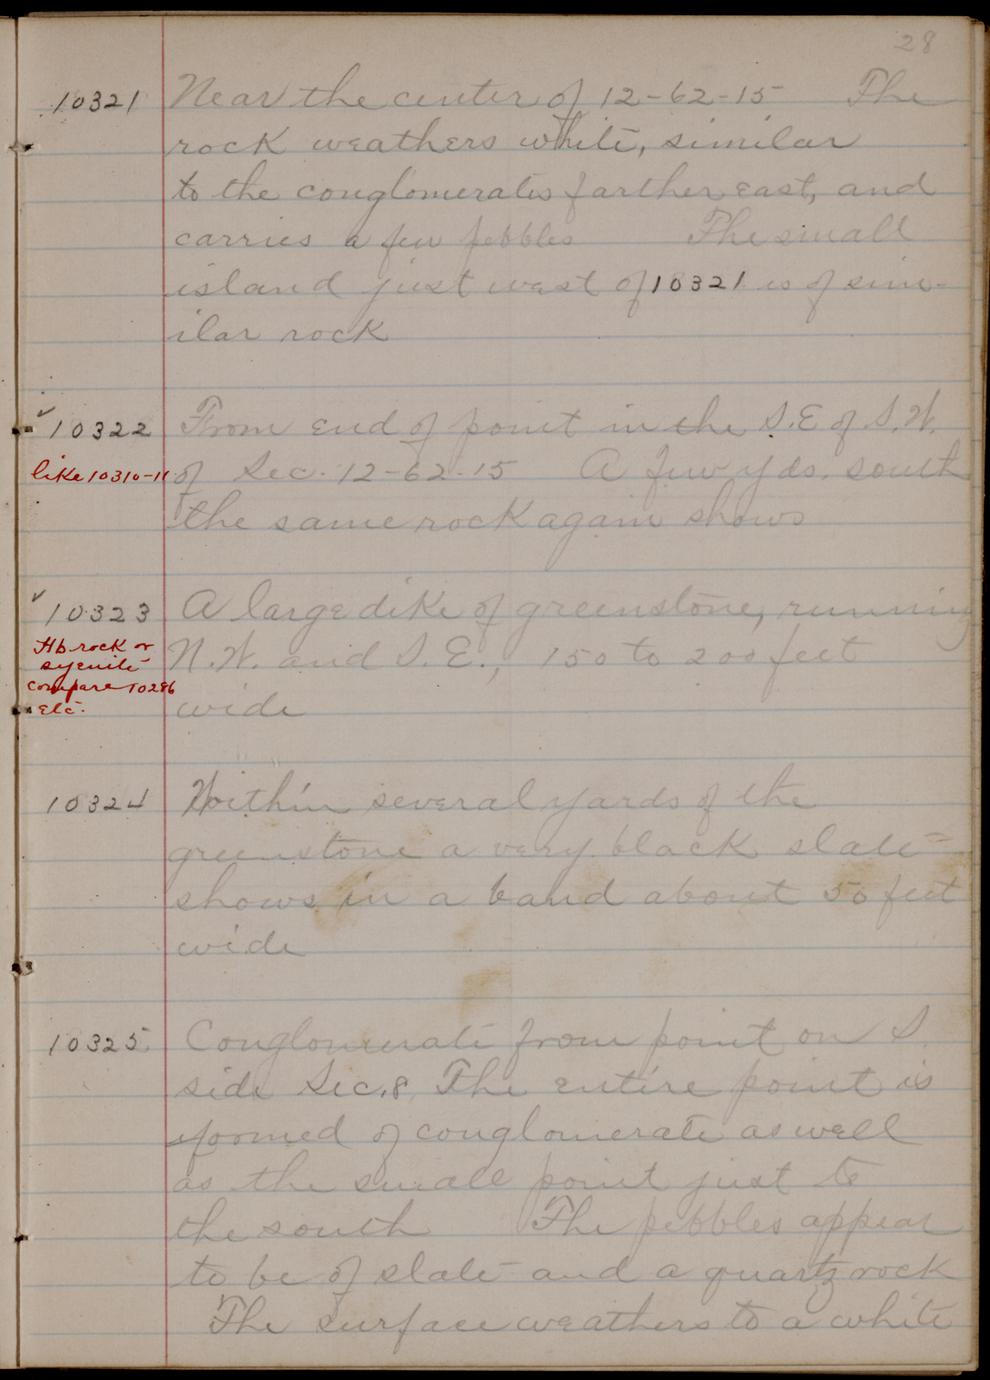 28
10321 Near the center of 12-62-15 The
rock weathers white, similar
to the conglomerates farther east, and
carries a few pebbles The small
island just west of 10321 is of sim-
ilar rock
✓ 10322 From end of point in the S.E of S.W.
like 10310-11 of Sec. 12-62-15 A few yds. south
the same rock again shows
✓ 10323 A large dike of greenstone, running
Hb rock or
syenite
compare 10286
etc.
N.W. and S.E., 150 to 200 feet
wide
10324 Within several yards of the
greenstone a very black slate
shows in a band about 50 feet
wide
10325 Conglomerate from point on S.
side Sec. 8 The entire point is
formed of conglomerate as well
as the small point just to
the south The pebbles appear
to be of slate and a quartz rock
The surface weathers to a white